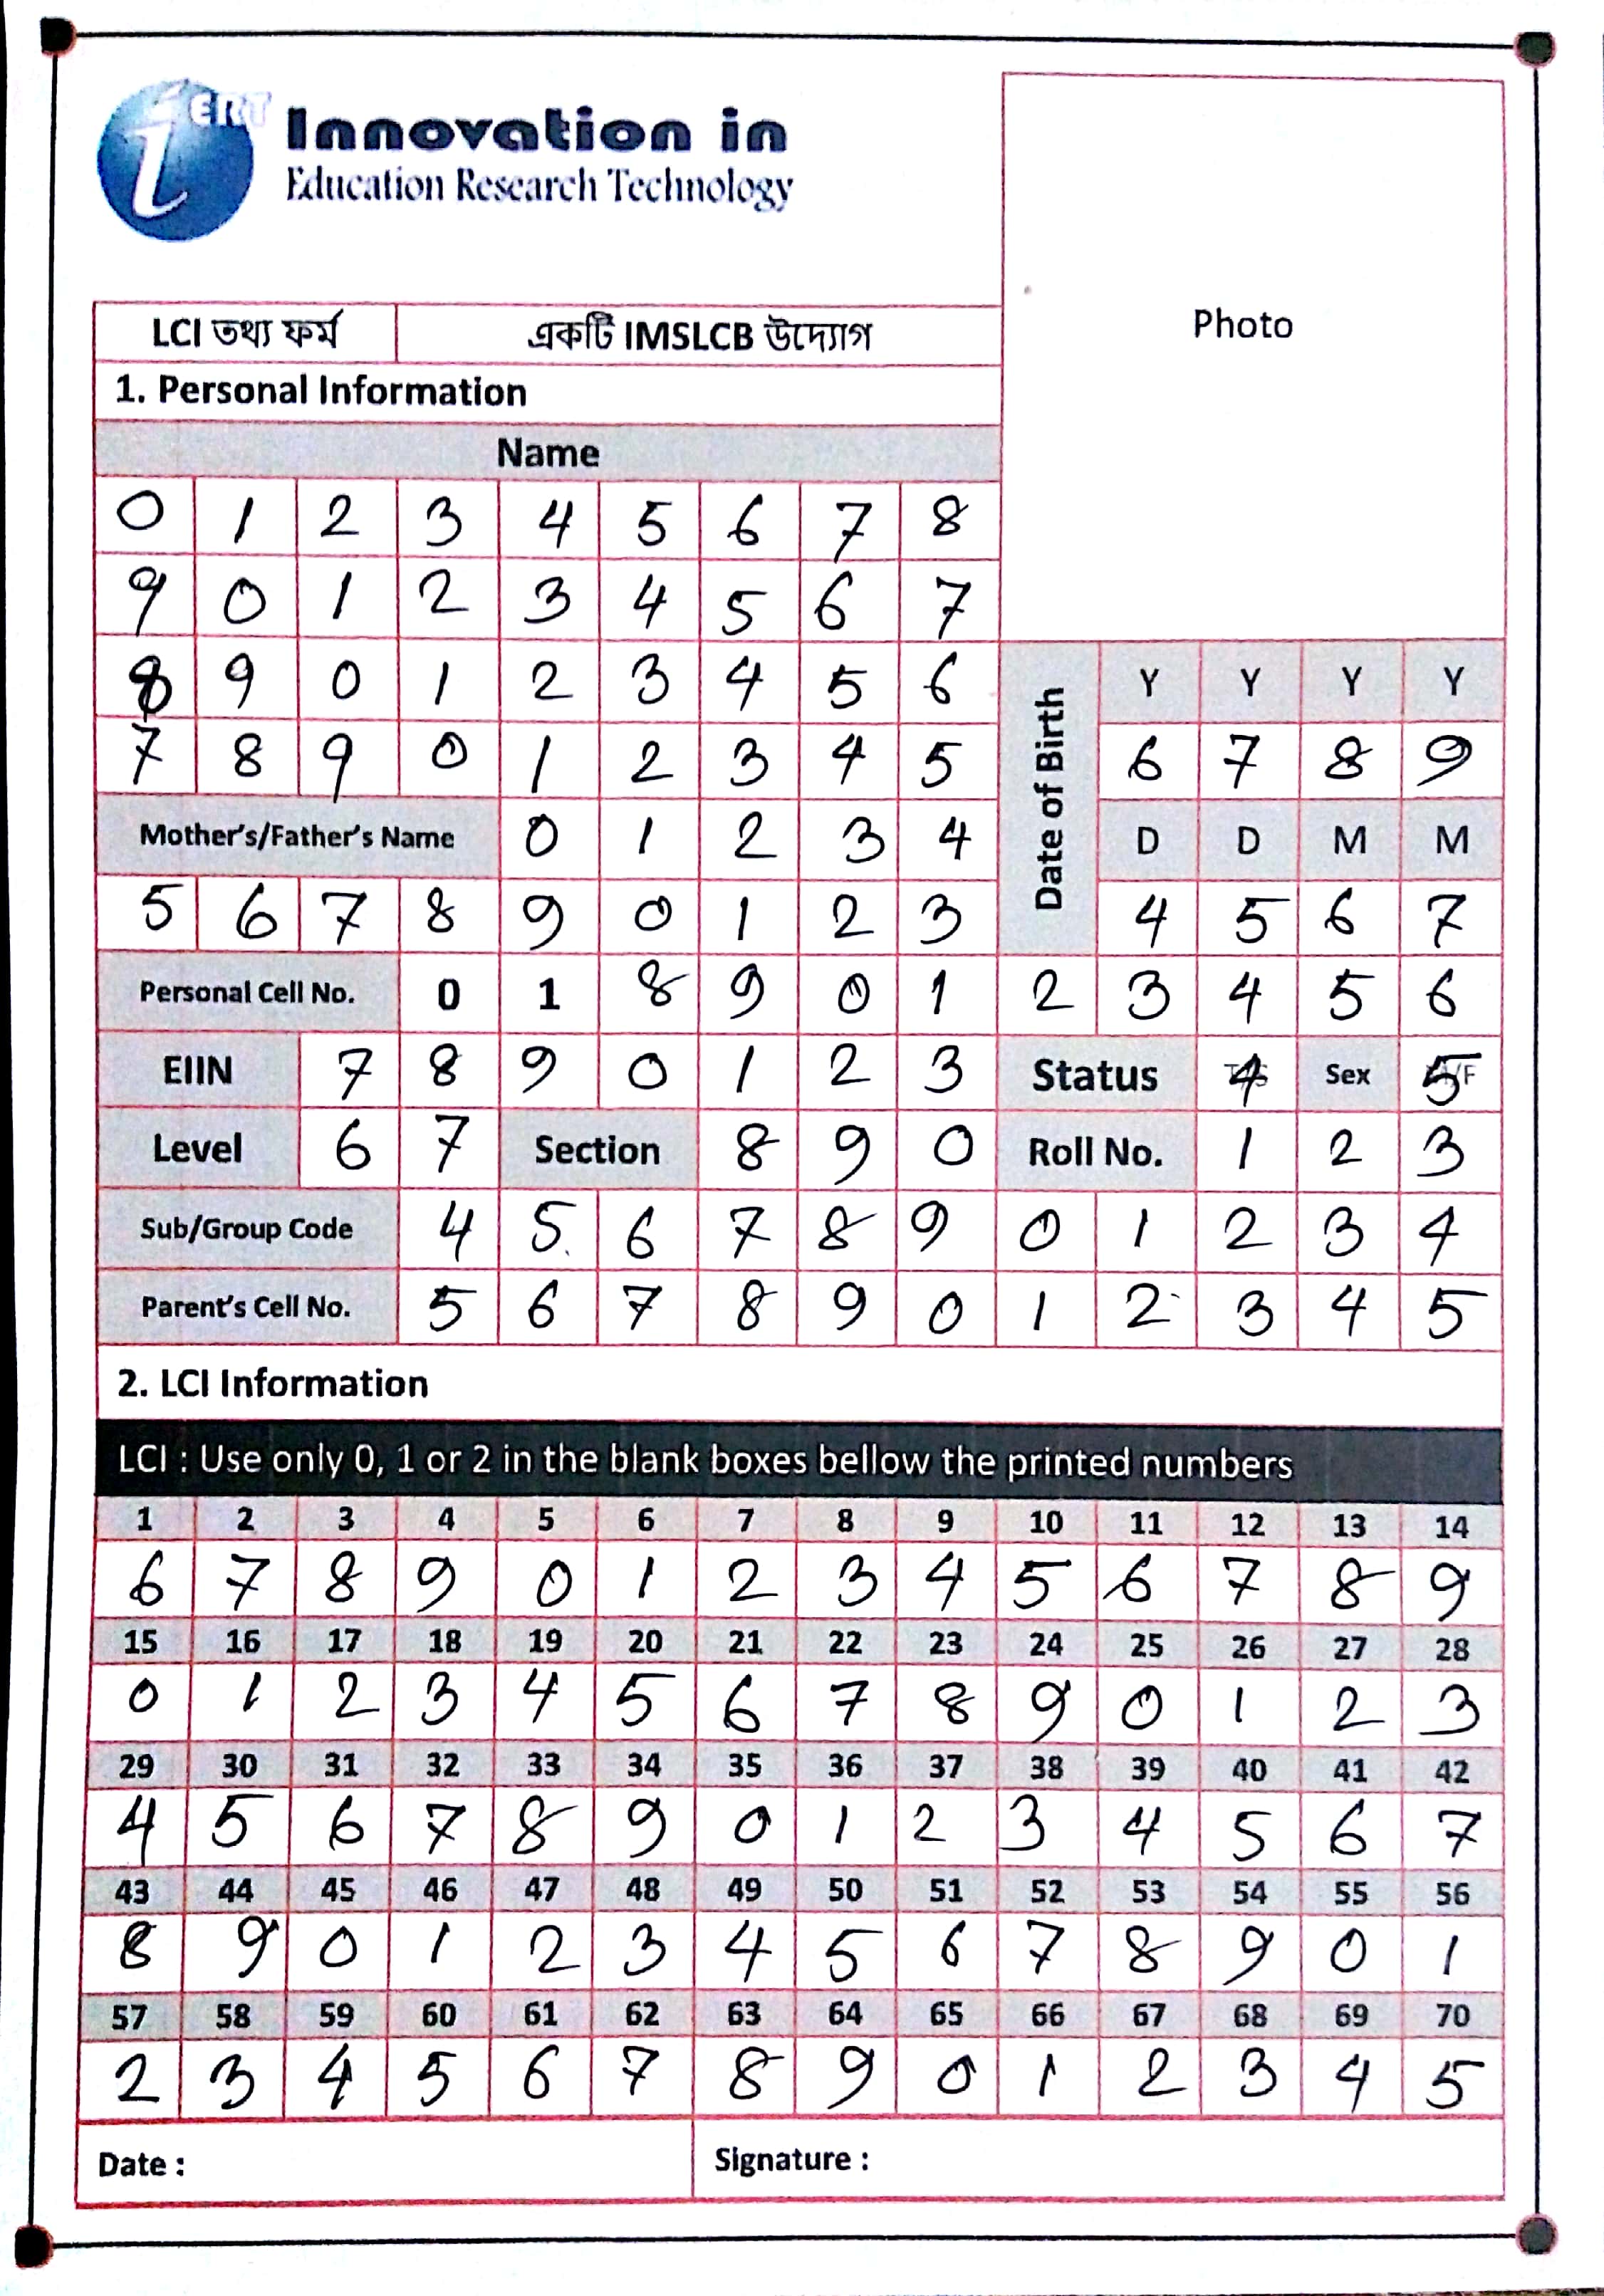 iERT
Innovation in
Education Research Technology
Photo
LCI তথ্য ফর্ম একটি IMSLCB উদ্যোগ
1. Personal Information
Name
0 1 2 3 4 5 6 7 8
9 0 1 2 3 4 5 6 7
8 9 0 1 2 3 4 5 6
7 8 9 0 1 2 3 4 5
Date of Birth
Y Y Y Y
6 7 8 9
D D M M
4 5 6 7
Mother's/Father's Name 0 1 2 3 4
5 6 7 8 9 0 1 2 3
Personal Cell No. 0 1 8 9 0 1 2 3 4 5 6
EIIN 7 8 9 0 1 2 3 Status 4 Sex 5
Level 6 7 Section 8 9 0 Roll No. 1 2 3
Sub/Group Code 4 5 6 7 8 9 0 1 2 3 4
Parent's Cell No. 5 6 7 8 9 0 1 2 3 4 5
2. LCI Information
LCI : Use only 0, 1 or 2 in the blank boxes bellow the printed numbers
1 2 3 4 5 6 7 8 9 10 11 12 13 14
6 7 8 9 0 1 2 3 4 5 6 7 8 9
15 16 17 18 19 20 21 22 23 24 25 26 27 28
0 1 2 3 4 5 6 7 8 9 0 1 2 3
29 30 31 32 33 34 35 36 37 38 39 40 41 42
4 5 6 7 8 9 0 1 2 3 4 5 6 7
43 44 45 46 47 48 49 50 51 52 53 54 55 56
8 9 0 1 2 3 4 5 6 7 8 9 0 1
57 58 59 60 61 62 63 64 65 66 67 68 69 70
2 3 4 5 6 7 8 9 0 1 2 3 4 5
Date : Signature :